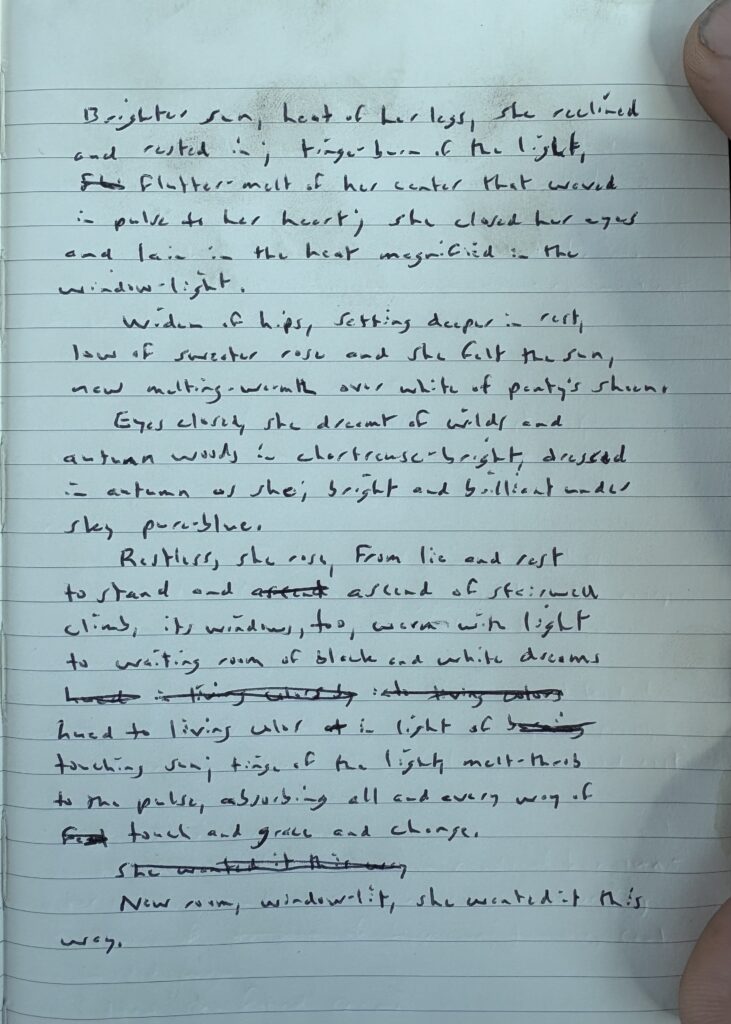 Brighter sun, heat of her legs, she reclined
and rested in; tinge-burn of the light,
Flutter-melt of her center that waved
in pulse to her heart; she closed her eyes
and lain in the heat magnified in the
window-light.
Widen of hips, setting deeper in rest,
low of sweater rose and she felt the sun,
new melting-warmth over white of panty's sheen.
Eyes closed, she dreamt of wilds and
autumn woods in chartreuse-bright, dressed
in autumn as she; bright and brilliant under
sky pure-blue.
Restless, she rose, From lie and rest
to stand and ascent ascend of stairwell
climb, its windows, too, warm with light
to waiting room of black and white dreams
hued in living colors by into living colors
hued to living color at in light of
touching sun; tinge of the light, melt-throb
to the pulse, absorbing all and every way of
touch and grace and change.
She wanted it this way
New room, window-lit, she wanted it this
way.